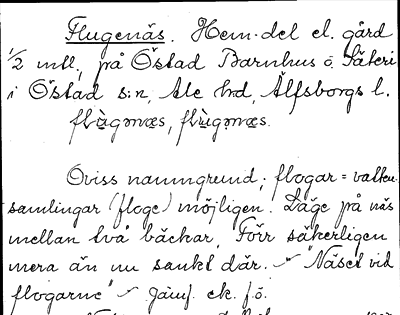 Flugenäs. Hem.del el. gård
1/2 mtl, på Östad Barnhus o. Säteri
i Östad s:n, Ale hd, Älfsborgs l.
flùgənæs, flùgənæs.
Oviss namngrund; flogar = vatten-
samlingar (floge) möjligen. Läge på näs
mellan två bäckar. Förr säkerligen
mera än nu sankt där. "Näset vid
flogarne" Jämf. ek. f.ö.